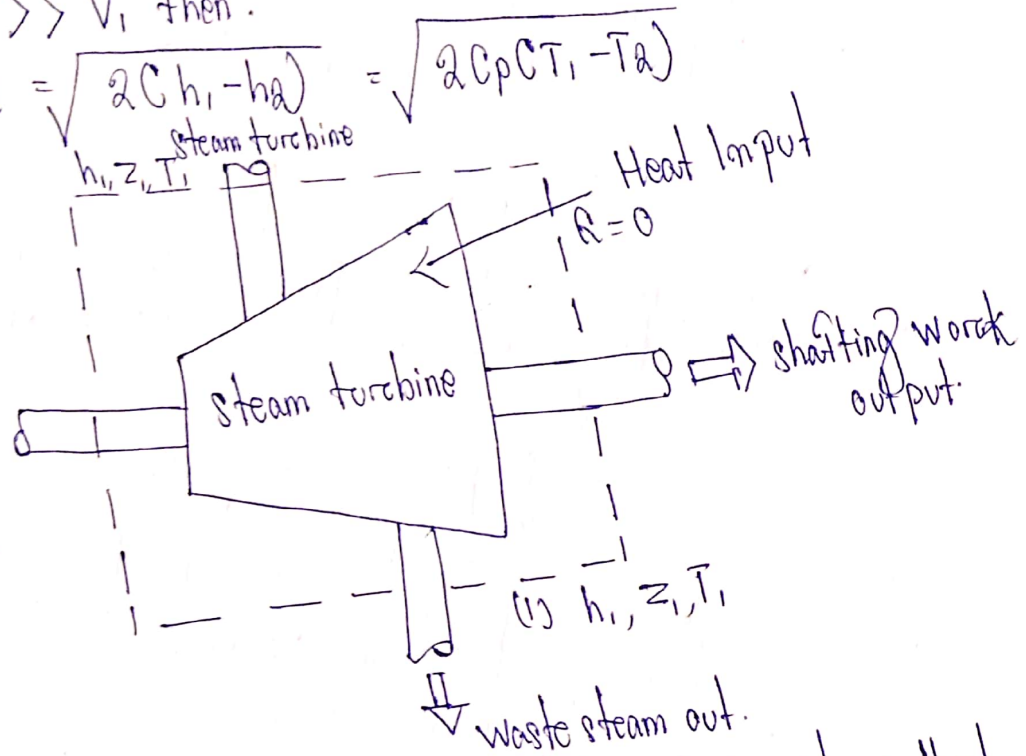 >> V₁ then.
= √2(h₁-h2) = √2Cp(T₁-T2)
steam turcbine
h₁, Z₁, T₁
Heat Input
Q=0
steam turcbine
output.
(1) h₁, Z₁, T₁
waste steam out.